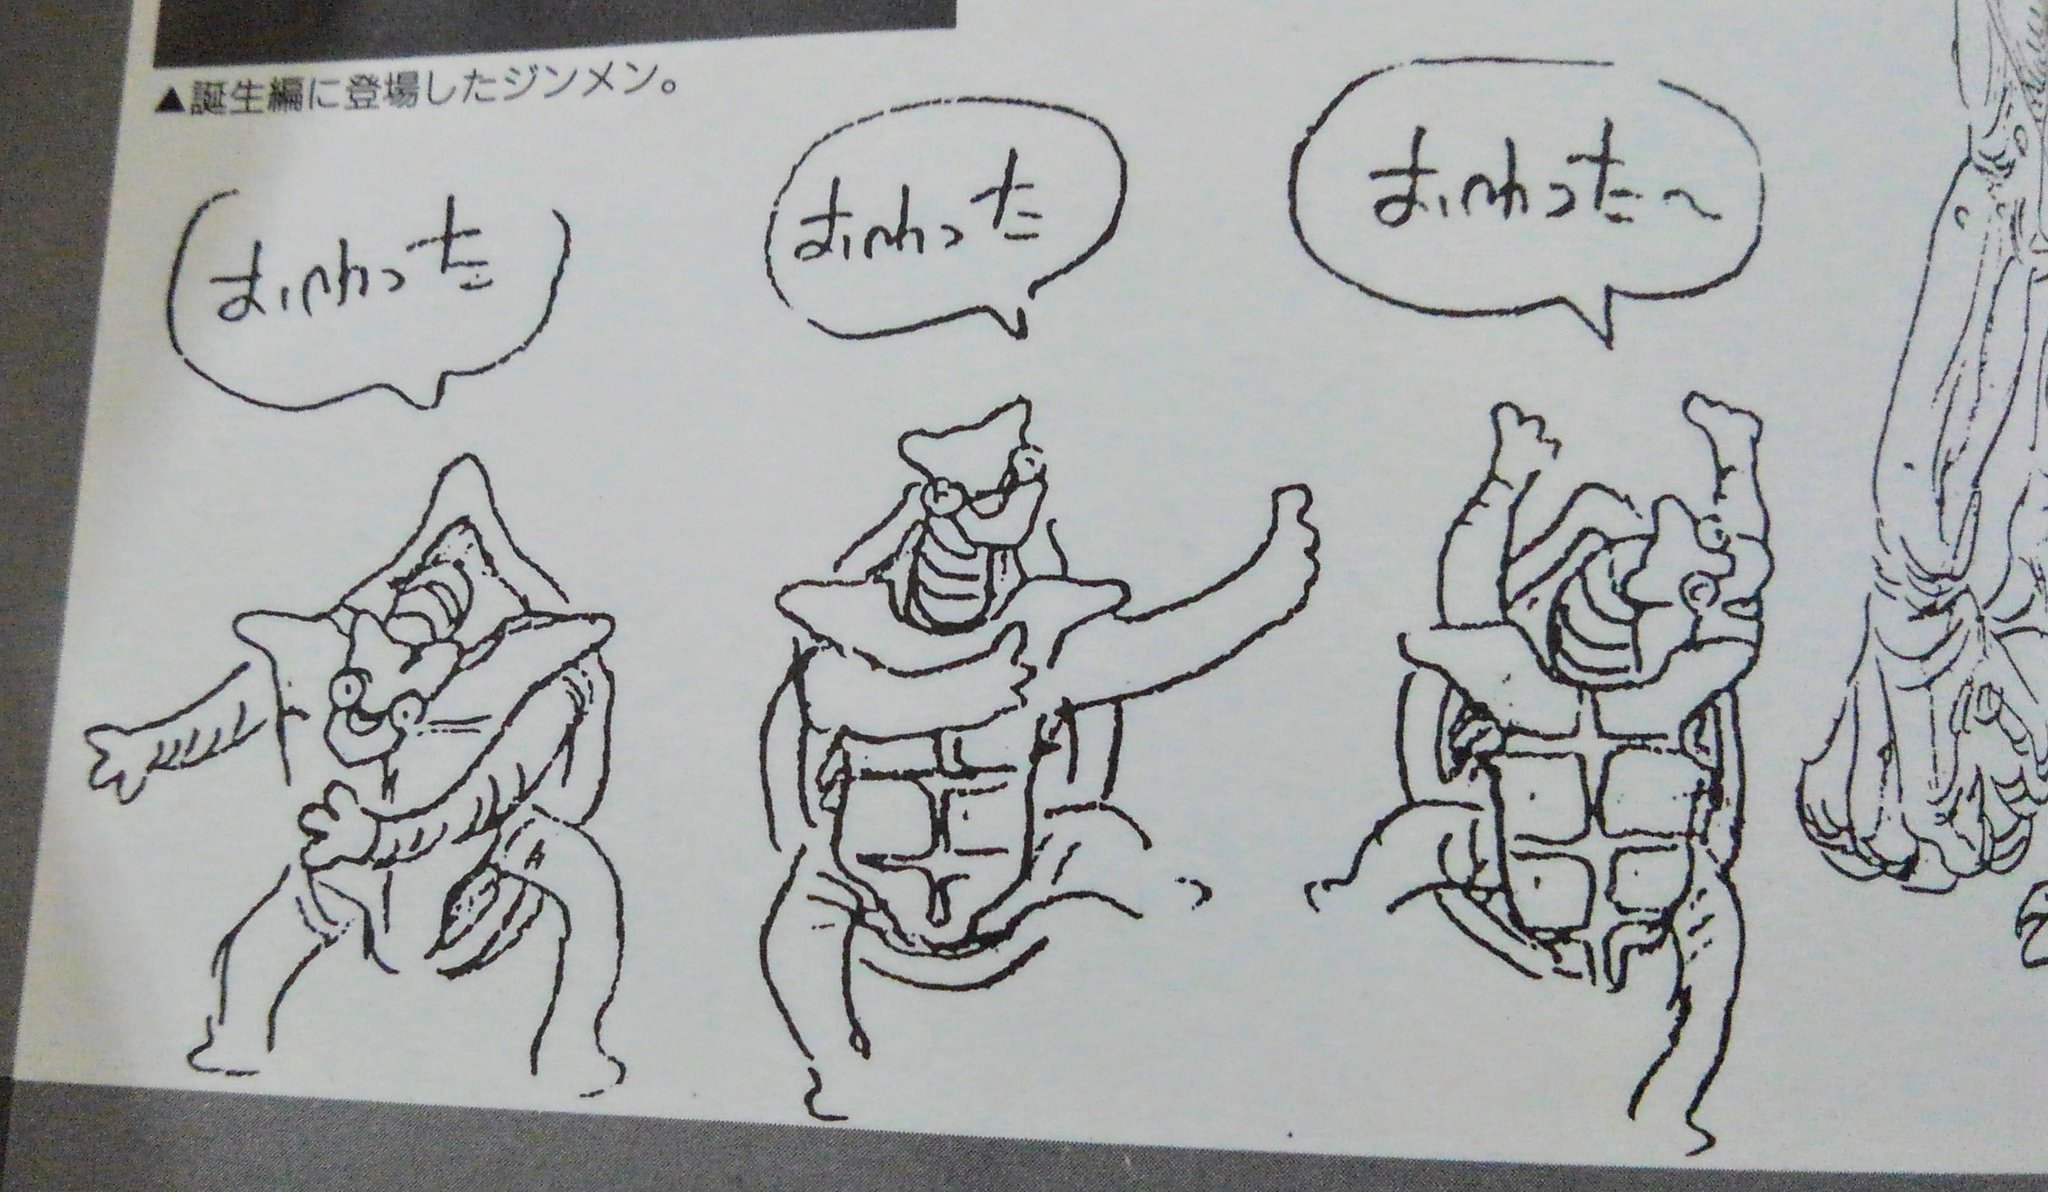 ▲誕生編に登場したジンメン。
おわった
おわった
おわった〜